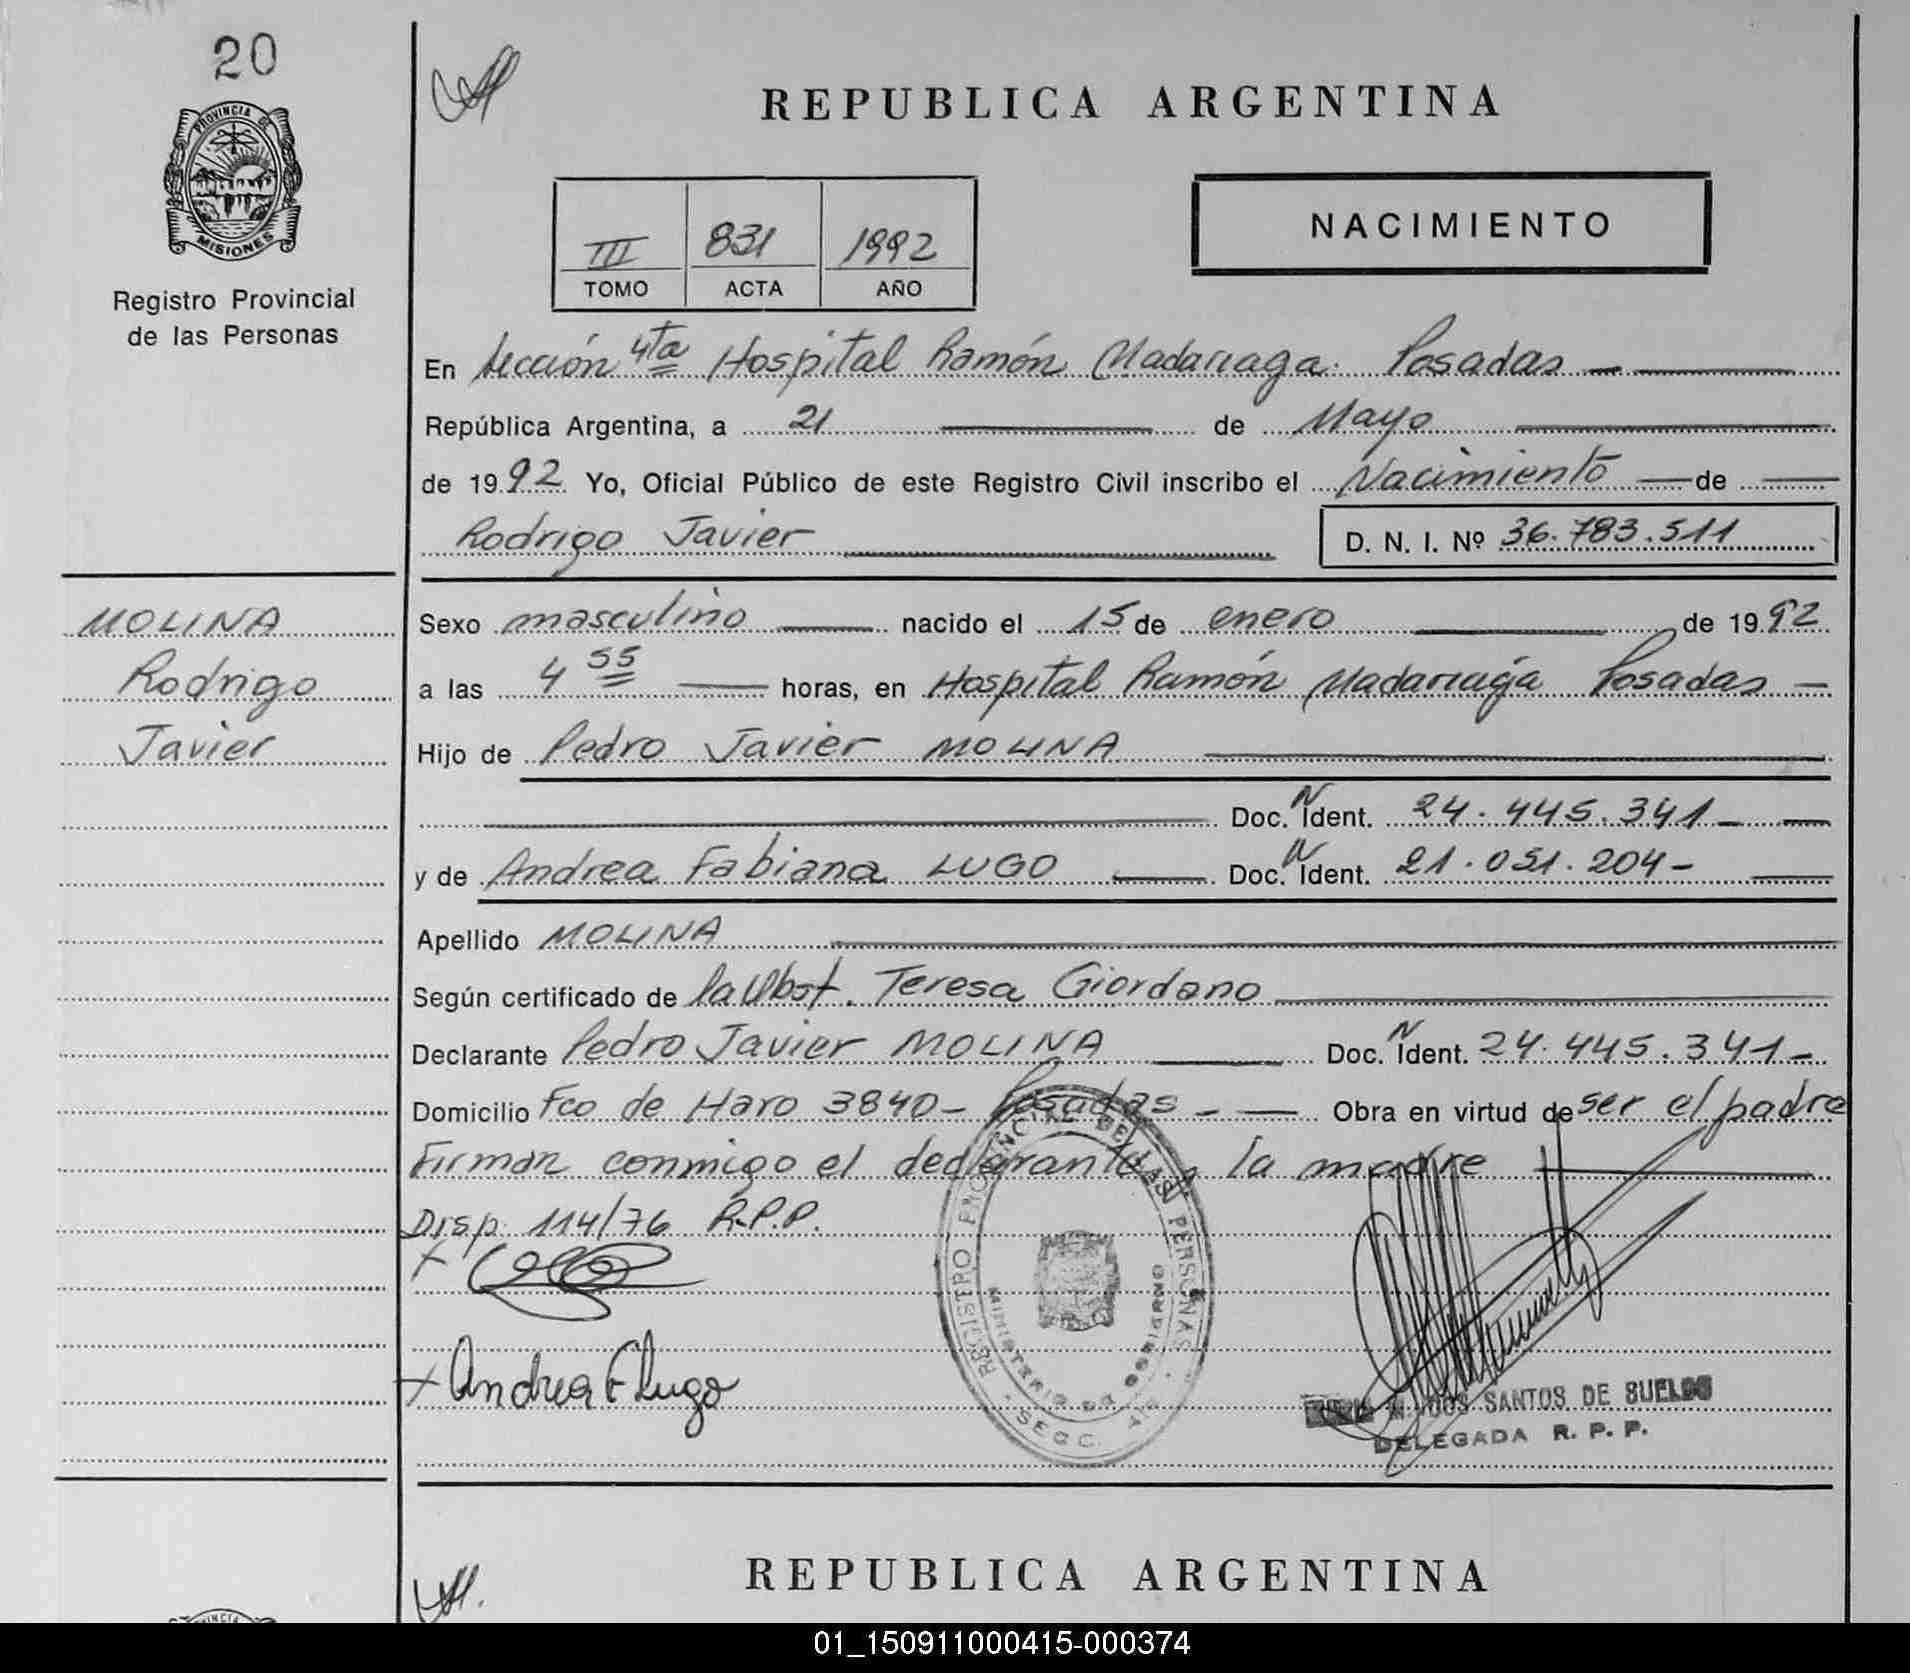 20
PROVINCIA DE
MISIONES
Registro Provincial
de las Personas
REPUBLICA ARGENTINA
NACIMIENTO
III 831 1992
TOMO ACTA AÑO
En Sección 4ta Hospital Ramón Madariaga. Posadas
República Argentina, a 21 de Mayo
de 1992 Yo, Oficial Público de este Registro Civil inscribo el Nacimiento de
Rodrigo Javier D. N. I. Nº 36.783.511
MOLINA
Rodrigo
Javier
Sexo masculino nacido el 15 de enero de 1992
a las 4 55 horas, en Hospital Ramón Madariaga Posadas
Hijo de Pedro Javier MOLINA
Doc. N Ident. 24.445.341
y de Andrea Fabiana LUGO Doc. N Ident. 21.051.204
Apellido MOLINA
Según certificado de la Obst. Teresa Giordano
Declarante Pedro Javier MOLINA Doc. N Ident. 24.445.341
Domicilio Fco de Haro 3840 - Posadas - Obra en virtud de ser el padre
Firman conmigo el declarante y la madre
Disp. 114/76 R.P.P.
Andrea F Lugo
REGISTRO PROVINCIAL DE LAS PERSONAS
MINISTERIO DE GOBIERNO
SECC. 4ta
DOS SANTOS DE SUELDO
DELEGADA R. P. P.
REPUBLICA ARGENTINA
01_150911000415-000374